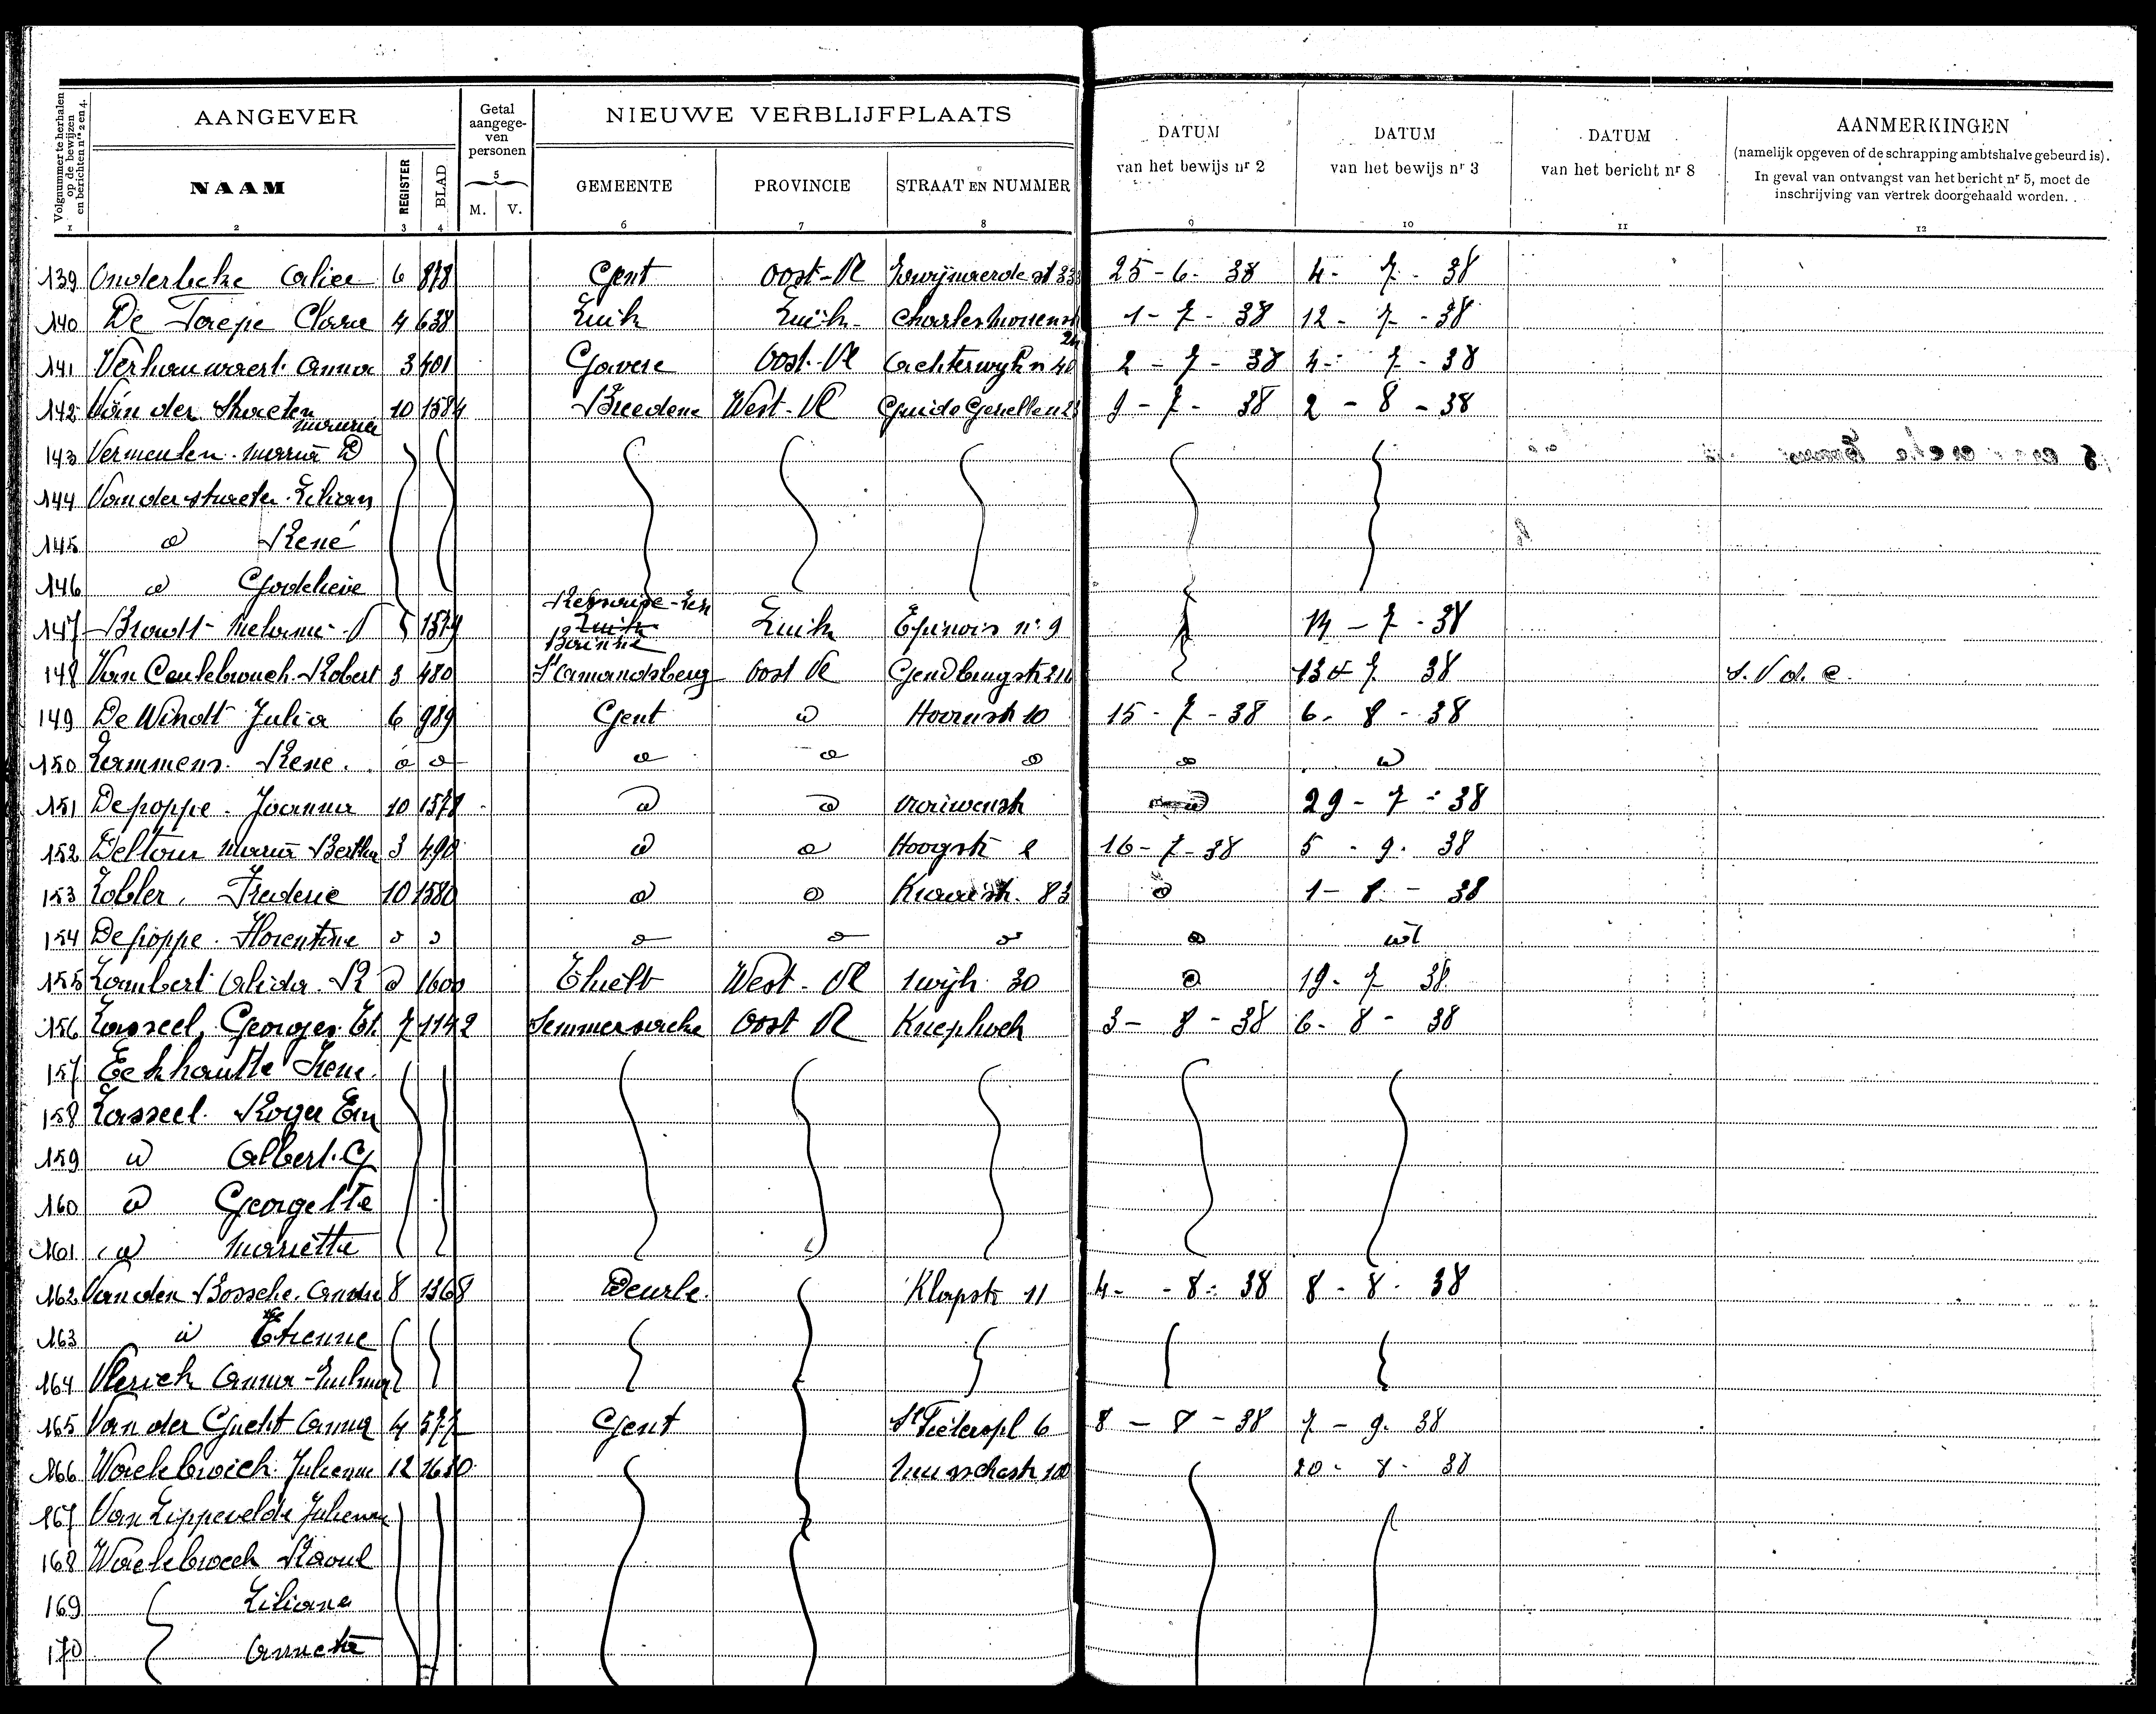 Volgnummer te herhalen op de bewijzen en berichten nrs 2 en 4.
AANGEVER
Getal aangegeven personen
NIEUWE VERBLIJFPLAATS
DATUM van het bewijs nr 2
DATUM van het bewijs nr 3
DATUM van het bericht nr 8
AANMERKINGEN
(namelijk opgeven of de schrapping ambtshalve gebeurd is).
In geval van ontvangst van het bericht nr 5, moet de
inschrijving van vertrek doorgehaald worden.
NAAM REGISTER BLAD 5 M. V. GEMEENTE PROVINCIE STRAAT EN NUMMER
1 2 3 4 6 7 8 9 10 11 12
139 Onderbeke Alice 6 878 Gent Oost-Vl 25-6-38 4-7-38
140 De Clara 4 638 Luik Luik 1-7-38 12-7-38
141 Verhauwaert Anna 3 401 Gavere Oost-Vl 40 2-7-38 4-7-38
142 Van der Straeten Maurice 10 1584 Breedene West-Vl Guido Gezelle 9-7-38 2-8-38
143 Vermeulen Maria D
144 Van der Straeten Lilian
145 d René
146 d Godelieve
147 1579 Luik Luik n° 9 14-7-38
148 Robert 3 480 St Amandsberg Oost Vl 13-7-38
149 De Windt Julia 6 989 Gent d Hoornstr 10 15-7-38 6-8-38
150 Lammens René d d d d d d d
151 Depoppe Joanna 10 1578 d d d 29-7-38
152 Deltour Maria Bertha 3 490 d d Hoogstr 16-7-38 5-9-38
153 Frederic 10 1580 d d 83 d 1-8-38
154 Depoppe Florentine d d d d d d d
155 Lambert Alida R d 1600 Thielt West-Vl wijk 30 d 19-7-38
156 Lasseel Georges 7 1142 Semmersacke Oost Vl Knephoek 3-8-38 6-8-38
157 Eeckhautte Irene
158 Lasseel Roger Em
159 d Albert G
160 d Georgette
161 d Mariette
162 Van den Bossche André 8 1368 Deurle Klapstr 11 4-8-38 8-8-38
163 d Etienne
164 Vlerick Anna
165 Van der Gucht Anna 4 577 Gent St Pieterspl 6 8-8-38 7-9-38
166 Julienne 12 1630 100 20-8-38
167 Van Lippevelde Julienne
168 Raoul
169 Liliane
170 Annette